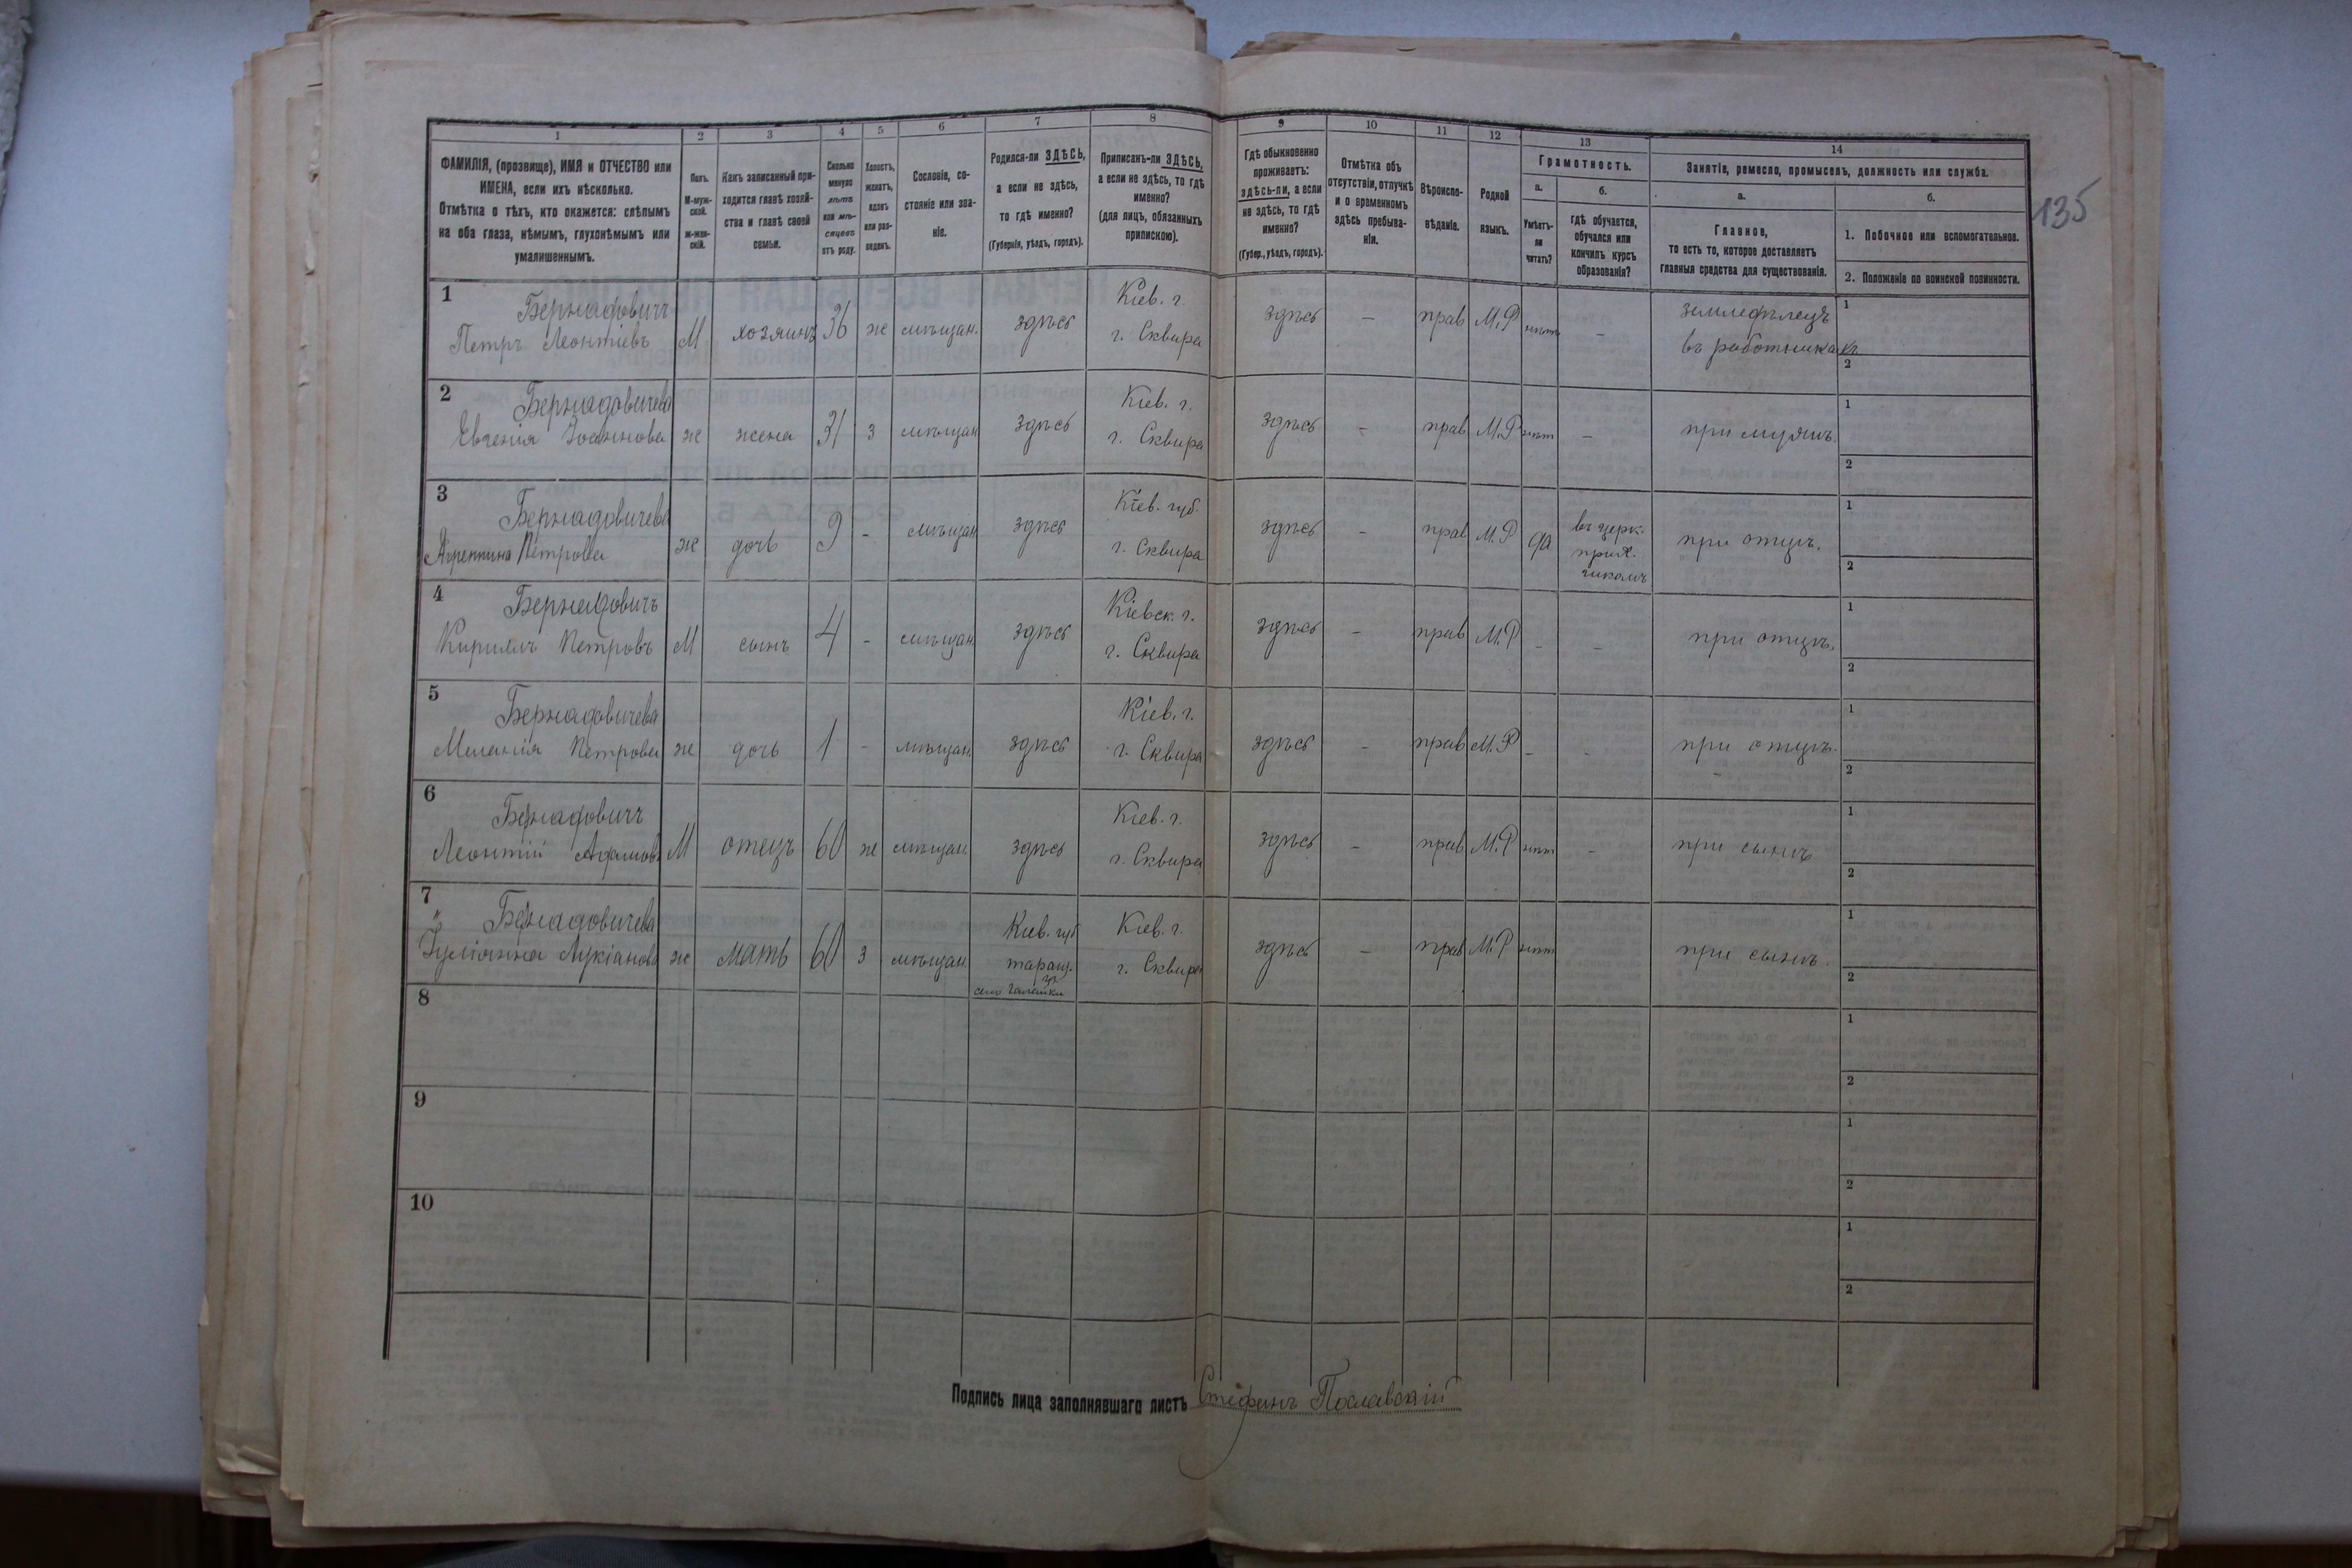 1 2 3 4 5 6 7 8 9 10 11 12 13 14
ФАМИЛІЯ, (прозвище), ИМЯ и ОТЧЕСТВО или
ИМЕНА, если ихъ нѣсколько.
Отмѣтка о тѣхъ, кто окажется: слѣпымъ
на оба глаза, нѣмымъ, глухонѣмымъ или
умалишеннымъ.
Полъ.
М-муж-
ской.
ж-жен-
скій.
Какъ записанный при-
ходится главѣ хозяй-
ства и главѣ своей
семьи.
Сколько
минуло
лѣтъ
или мѣ-
сяцевъ
отъ роду.
Холостъ,
женатъ,
вдовъ
или раз-
веденъ.
Сословіе, со-
стояніе или зва-
ніе.
Родился-ли ЗДѢСЬ,
а если не здѣсь,
то гдѣ именно?
(Губернія, уѣздъ, городъ).
Приписанъ-ли ЗДѢСЬ,
а если не здѣсь, то гдѣ
именно?
(для лицъ, обязанныхъ
припискою).
Гдѣ обыкновенно
проживаетъ:
здѣсь-ли, а если
не здѣсь, то гдѣ
именно?
(Губер., уѣздъ, городъ).
Отмѣтка объ
отсутствіи, отлучкѣ
и о временномъ
здѣсь пребыва-
ніи.
Вѣроиспо-
вѣданіе.
Родной
языкъ.
Грамотность.
а.
Умѣетъ-
ли
читать?
б.
гдѣ обучается,
обучался или
кончилъ курсъ
образованія?
Занятіе, ремесло, промыселъ, должность или служба.
а.
Главное,
то есть то, которое доставляетъ
главныя средства для существованія.
б.
1. Побочное или вспомогательное.
2. Положеніе по воинской повинности.
135
1 Бернадовичъ Кіев. г. земледѣлецъ 1
Петръ Леонтіевъ М хозяинъ 36 ж мѣщан. здѣсь г. Сквира здѣсь – прав М.Р нѣтъ – въ работникахъ
2
2 Бернадовичева Кіев. г. 1
Евгенія Іоаннова ж жена 31 з мѣщан здѣсь г. Сквира здѣсь – прав М.Р нѣт – при мужѣ.
2
3 Бернадовичева Кіев. губ. въ церк. 1
Агрепина Петрова ж дочь 9 - мѣщан здѣсь г. Сквира здѣсь – прав М.Р да прих. при отцѣ.
школѣ 2
4 Бернадовичъ Кіевск. г. 1
Кириллъ Петровъ М сынъ 4 - мѣщан. здѣсь г. Сквира здѣсь – прав М.Р - - при отцѣ.
2
5 Бернадовичева Кіев. г. 1
Меланія Петрова ж дочь 1 - мѣщан. здѣсь г. Сквира здѣсь – прав М.Р - - при отцѣ.
2
6 Бернадовичъ Кіев. г. 1
Леонтій Адамовъ М отецъ 60 ж мѣщан. здѣсь г. Сквира здѣсь – прав М.Р нѣт – при сынѣ
2
7 Бернадовичева Кіев. губ Кіев. г. 1
Іуліанна Лукіанова ж мать 60 з мѣщан. таращ. г. Сквира здѣсь – прав М.Р нѣт при сынѣ.
село 2
8 1
2
9 1
2
10 1
2
Подпись лица заполнявшаго листъ Стефанъ Пославскій